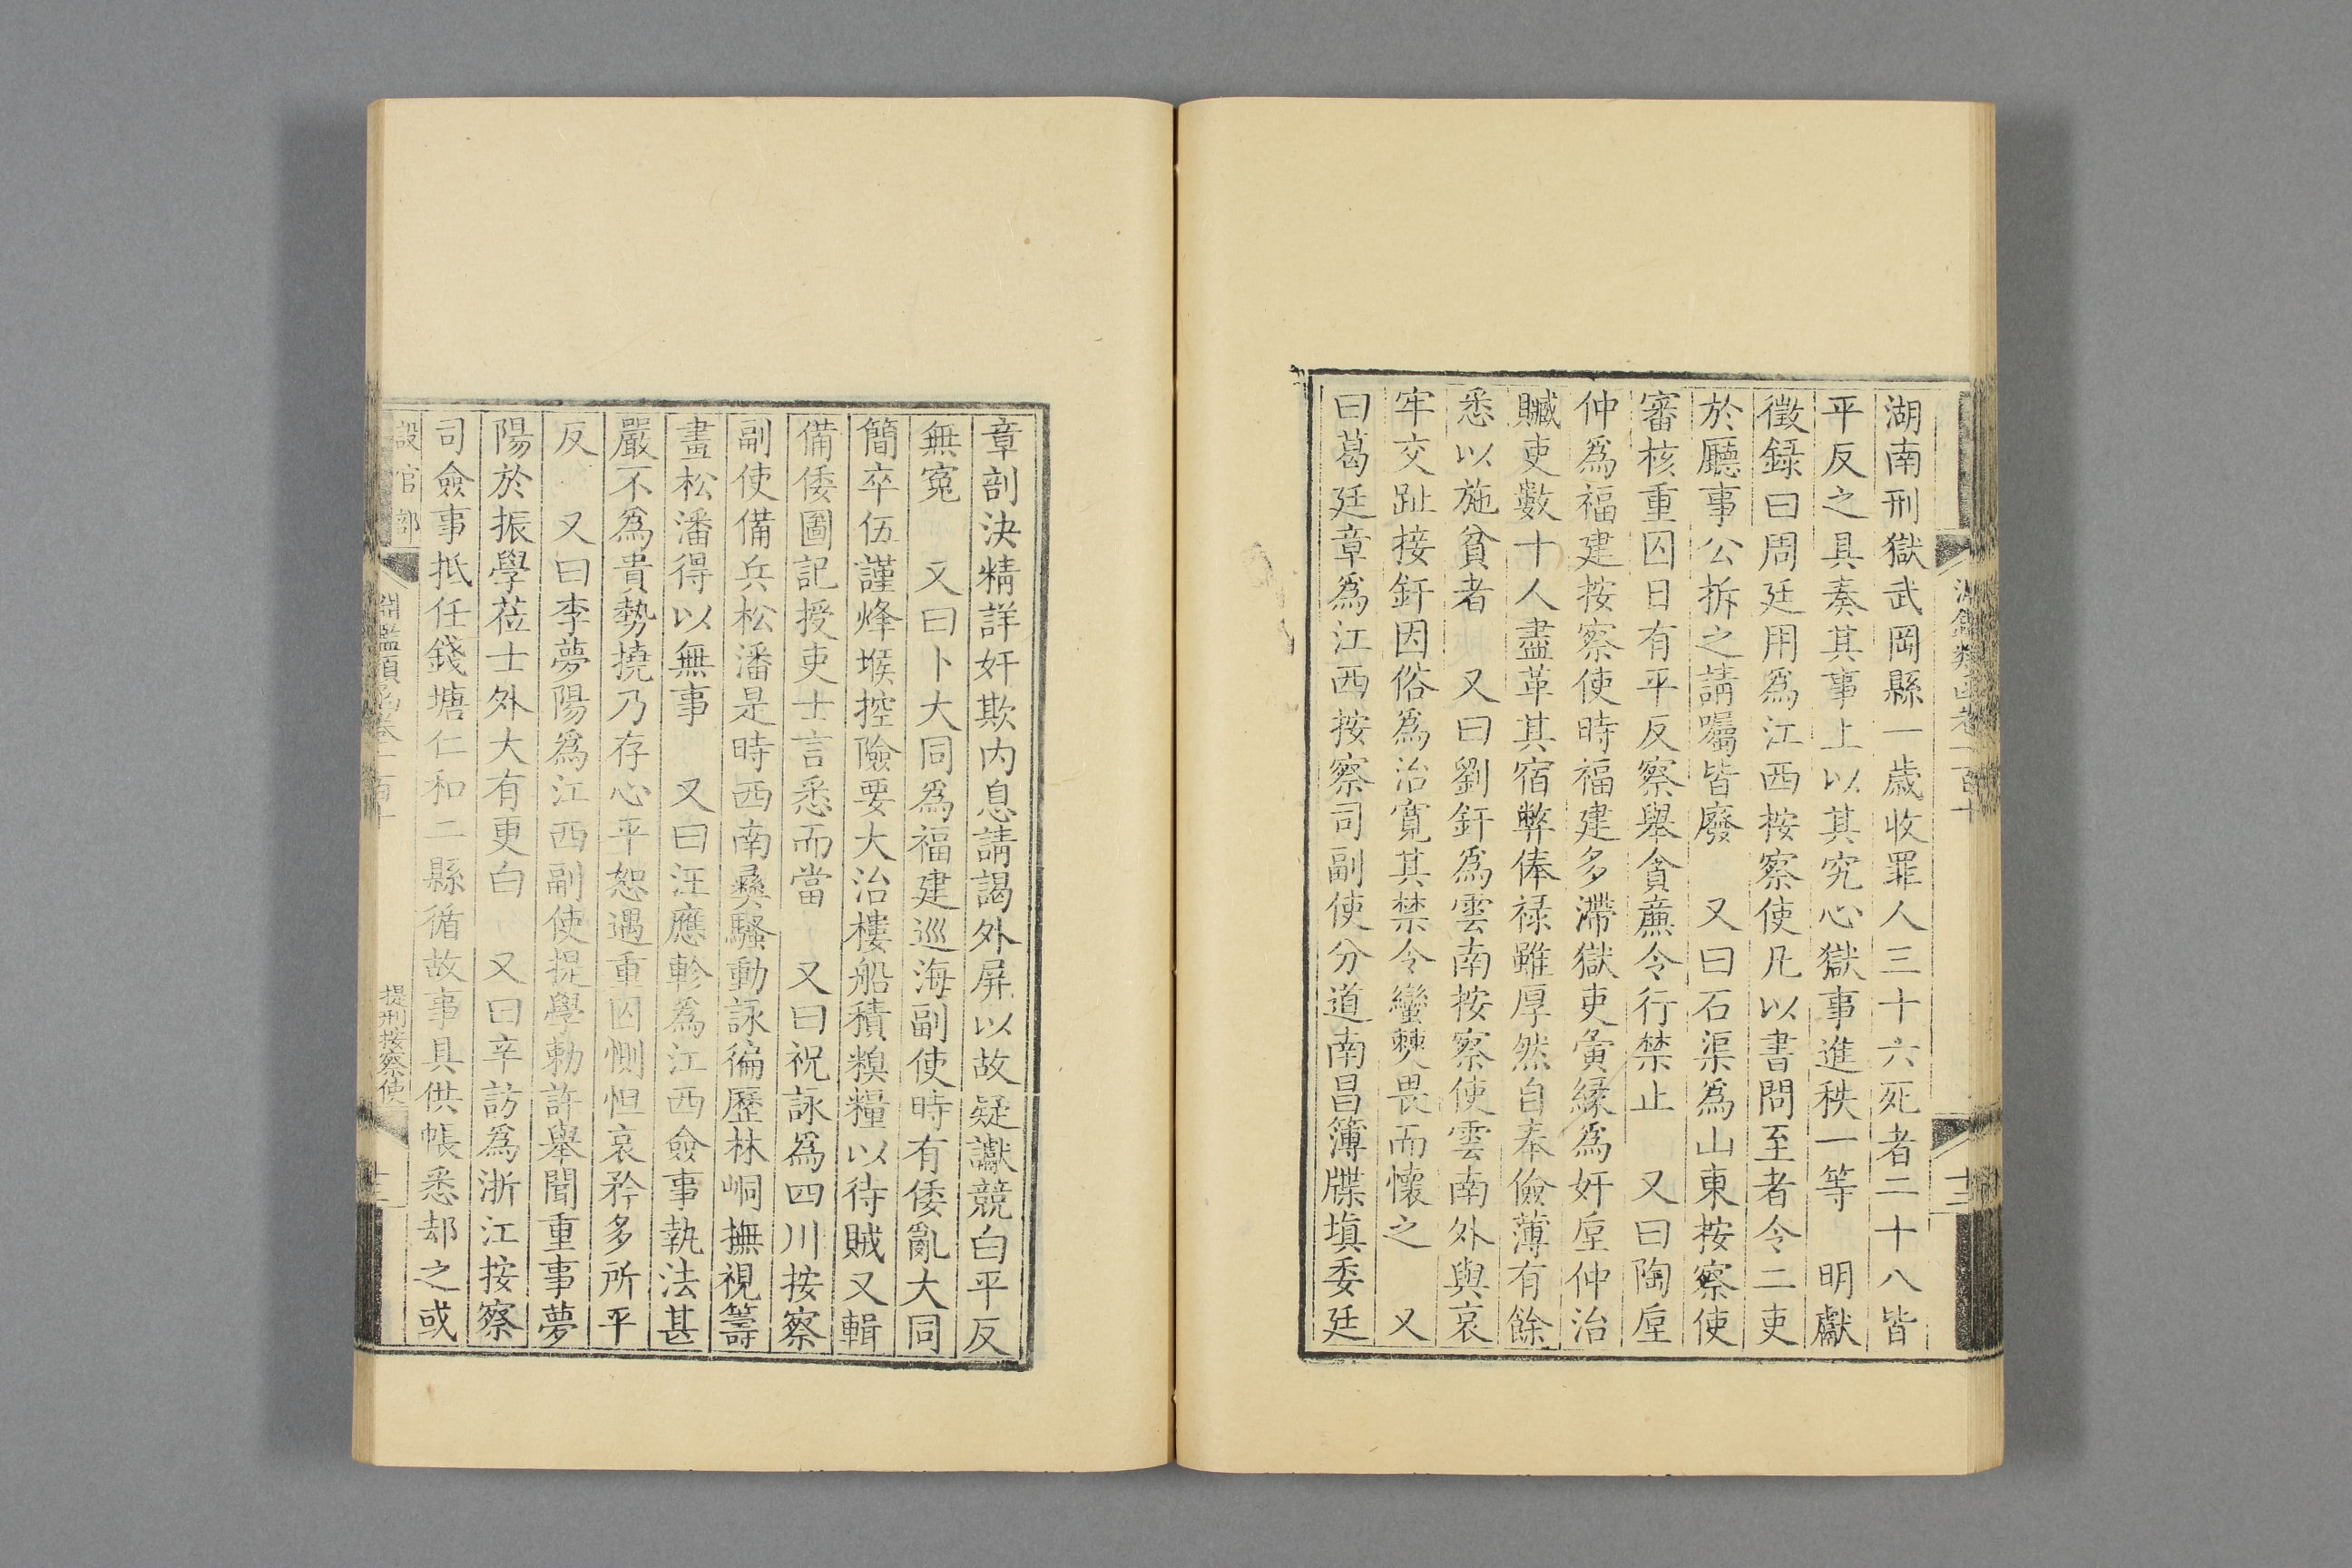 湖南刑獄武岡縣一歲收罪人三十六死者二十八皆
平反之具奏其事上以其究心獄事進秩一等　明獻
徵録曰周廷用爲江西按察使凡以書問至者令二吏
於廳事公拆之請囑皆廢　又曰石渠爲山東按察使
審核重囚日有平反察舉貪廉令行禁止　又曰陶垕
仲爲福建按察使時福建多滯獄吏夤緣爲奸垕仲治
贓吏數十人盡革其宿弊俸禄雖厚然自奉儉薄有餘
悉以施貧者　又曰劉釬爲雲南按察使雲南外與哀
牢交趾接釬因俗爲治寬其禁令蠻僰畏而懷之　又
曰葛廷章爲江西按察司副使分道南昌簿牒塡委廷
淵鑑類函卷一百十
十三
章剖決精詳奸欺内息請謁外屏以故疑讞競白平反
無寃　又曰卜大同爲福建巡海副使時有倭亂大同
簡卒伍謹烽堠控險要大治樓船積糗糧以待賊又輯
備倭圖記授吏士言悉而當　又曰祝詠爲四川按察
副使備兵松潘是時西南彛騷動詠徧歷林峒撫視籌
畫松潘得以無事　又曰汪應軫爲江西僉事執法甚
嚴不爲貴勢撓乃存心平恕遇重囚惻怛哀矜多所平
反　又曰李夢陽爲江西副使提學勅許舉聞重事夢
陽於振學莅士外大有更白　又曰辛訪爲浙江按察
司僉事抵任錢塘仁和二縣循故事具供帳悉却之或
設官部
淵鑑類函卷一百十
提刑按察使
十三